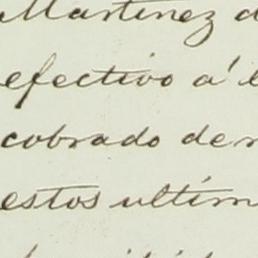 Martinez d
efectivo á l
cobrado de
estos ultim